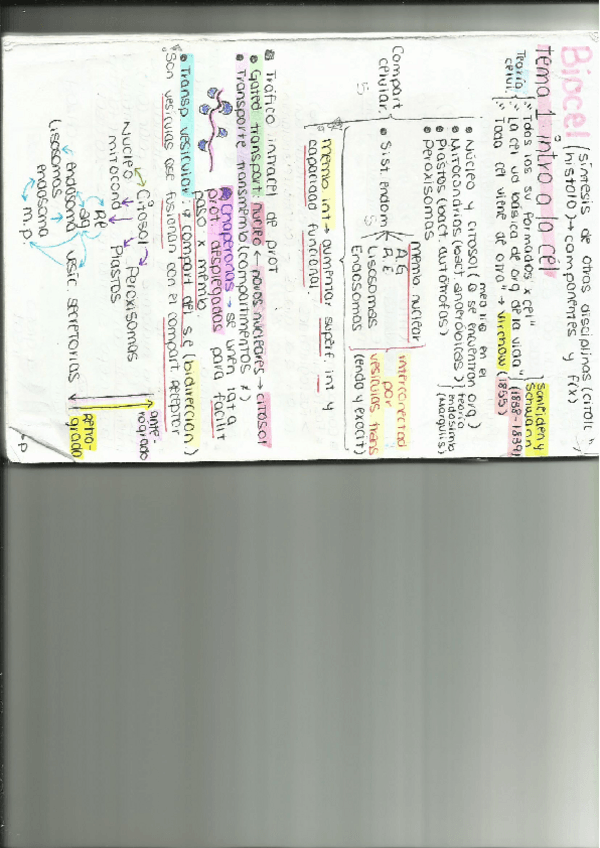 Biocel (síntesis de otras disciplinas (citolg y
histolg) → componentes y f(x)
tema 1 intro a la cel
Teoría celul.
"Todos los sv formados x cel"
"La cel ud básica de org de la vida"
Schleiden y Schwann (1838-1839)
"Toda cel viene de otra" → Virchow (1855)
Compart celular
• Núcleo y citosol (medio en el q se encuentran org)
• Mitocondrias (bact anaeróbicas)
• Plastos (bact. autótrofas)
teoría endosimb (Margulis)
• Peroxisomas
• Sist. endom
memb nuclear
A.G
R.E
Lisosomas
Endosomas
interconectad por vesículas trans (endo y exocit)
memb int → aumentar superf. int y
capacidad funcional.
Tráfico intracel de prot
• Gated transport: núcleo ← poros nucleares → citosol
• Transporte transmemb (compartimentos ≠)
Chaperonas → se unen
prot. desplegadas para facilit
paso x memb.
• Transp vesicular: ≠ compart del s.e (bidireccion)
"Son vesículas q se fusionan con el compart. receptor
Citosol
Núcleo
Peroxisomas
mitocond
Plastos
RE
ag
endosoma
vesic. secretorias
Lisosomas
endosoma
m.p.
ante-rogrado
retro-grado